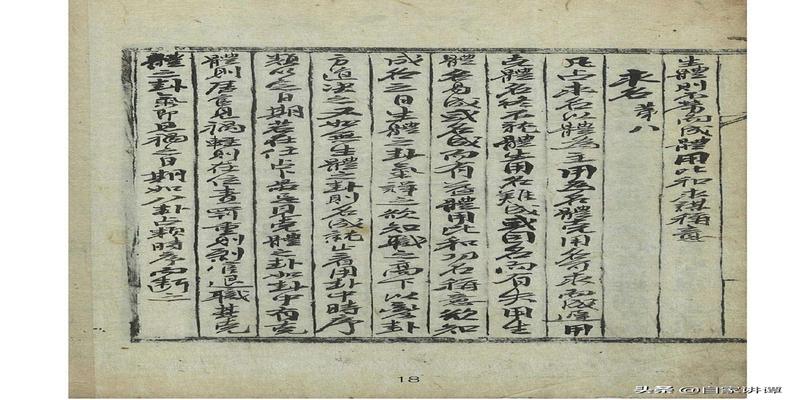 生體則不勞而成體用比和求謀稱意
求名 第八
凡占求名以體為主用為名體克用名可求而成遲用
克體名終不就體生用名難成或因名而有失用生
體名易成或名成而有益體用比和功名稱意欲知
成名之日生體之卦氣詳之欲知職之高下以變卦
方道決之又如無生體之卦則名成就止看用卦中時序
類以定日期若在任占卜最忌見克體之卦如卦中有克
體則居官見禍輕則在位責罰重則剝官退職其克
體之卦氣即見禍之日期如八卦占類時序而斷之
18
头条 @自家讲谭